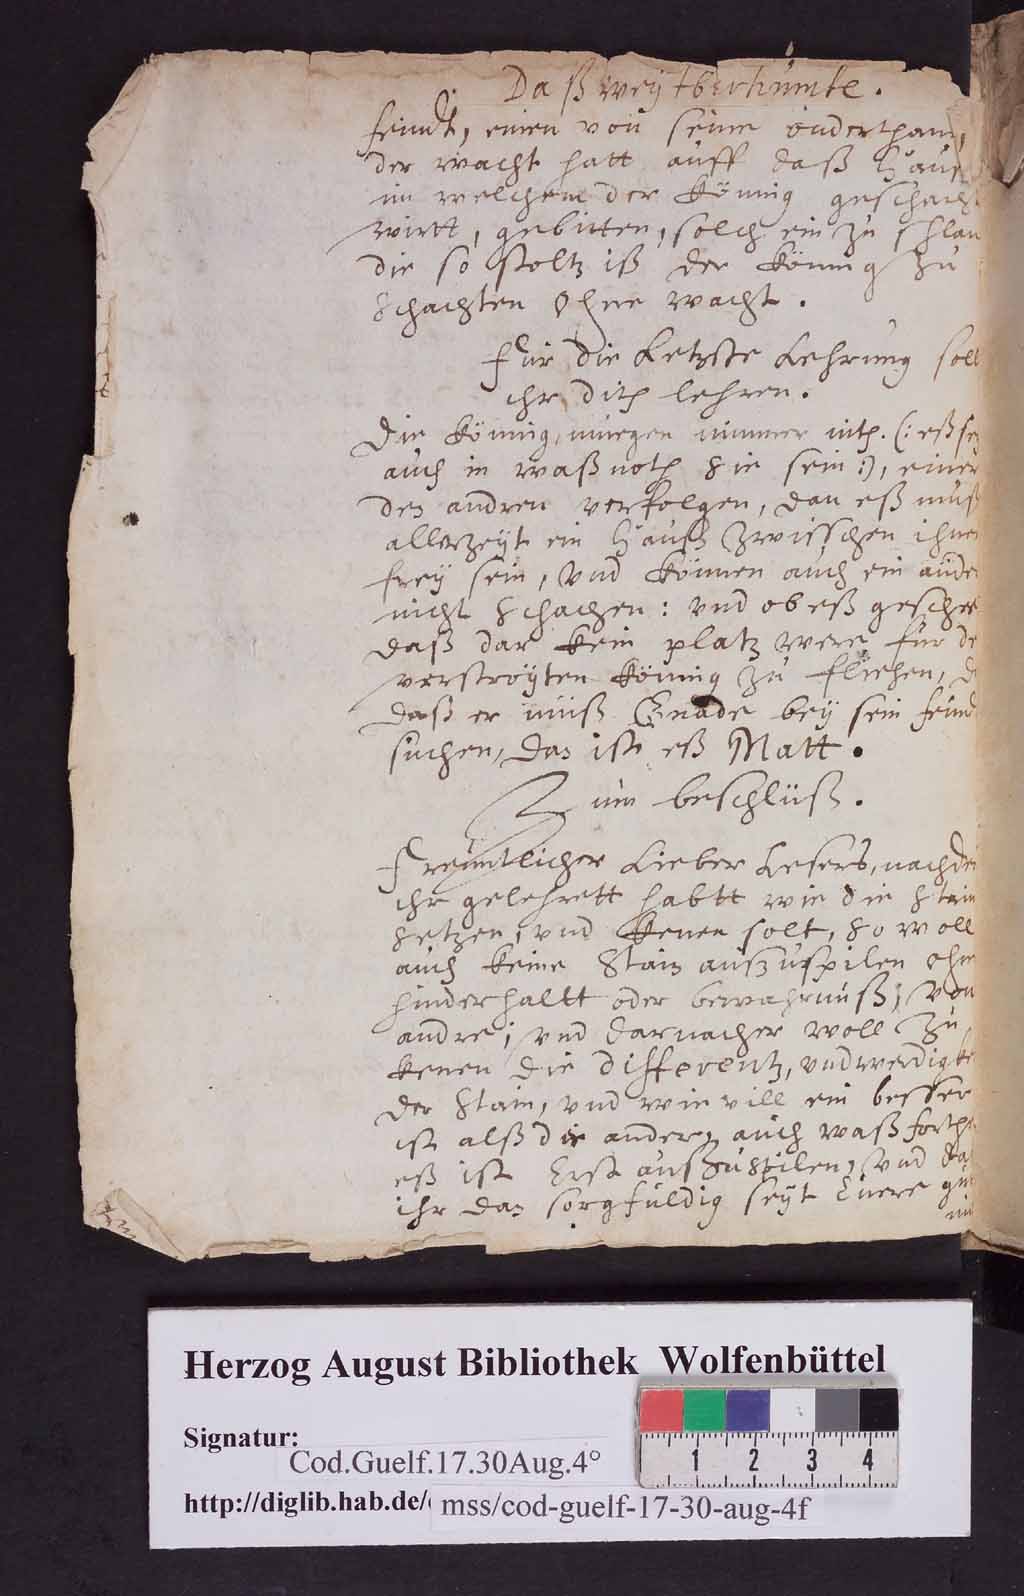 Daß weytberhümte.
feindt, einen von seine önderthann,
der wacht hatt auff daß Hauß
im welchem der Könnig geschacht
wirtt, gebitten, solch ein zu schlan
die so stoltz iß der Könnig zu
schachten Ohne wacht.
Für die Letzste Lehrung soll
ihr ditz lehren.
Die Könnig, muegen nimmer nitz. (: eß sey
auch in waß noth sie sein :), einer
den andren verfolgen, dan eß muß
allerzeyt ein Hauß zwisschen ihnen
freÿ sein, vnd können auch ein ander
nicht schachen: vnd ob eß gescheh
daß dar kein platz were für de
verstroÿten Könnig zu fliehen, d
daß er müß Gnade beÿ sein feind
suchen, das ist eß Matt.
Zum beschlüß.
Freuntlicher Lieber Lesers, nachdem
ihr gelehrett habtt wie die stain
setzen, vnd kenen solt, so woll
auch keine stain außzuspilen ohne
hinderhaltt oder bewahrnuß, von
andre, vnd darnacher woll zu
kenen die differentz, vnd werdigke
der stain, vnd wie vill ein besser
ist alß die ander, auch waß forth
eß ist Erst außzuspilen, vnd daß
ihr dan sorgfuldig seyt Euere gu
mi
Herzog August Bibliothek Wolfenbüttel
Signatur:
Cod.Guelf.17.30Aug.4°
http://diglib.hab.de/
mss/cod-guelf-17-30-aug-4f
1 2 3 4